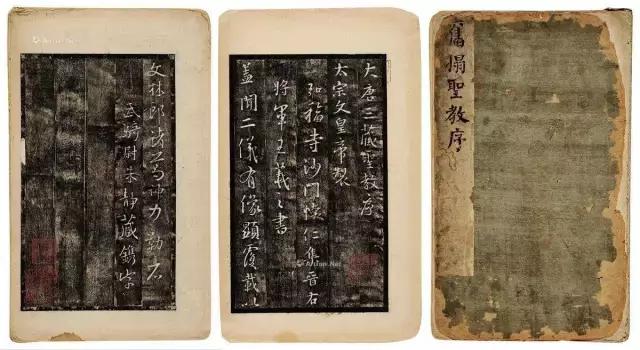 舊搨聖教序
大唐三藏聖教序
太宗文皇帝製
弘福寺沙門懷仁集晉右
將軍王羲之書
蓋聞二儀有像顯覆載以
文林郎諸葛神力勒石
武騎尉朱靜藏鐫字